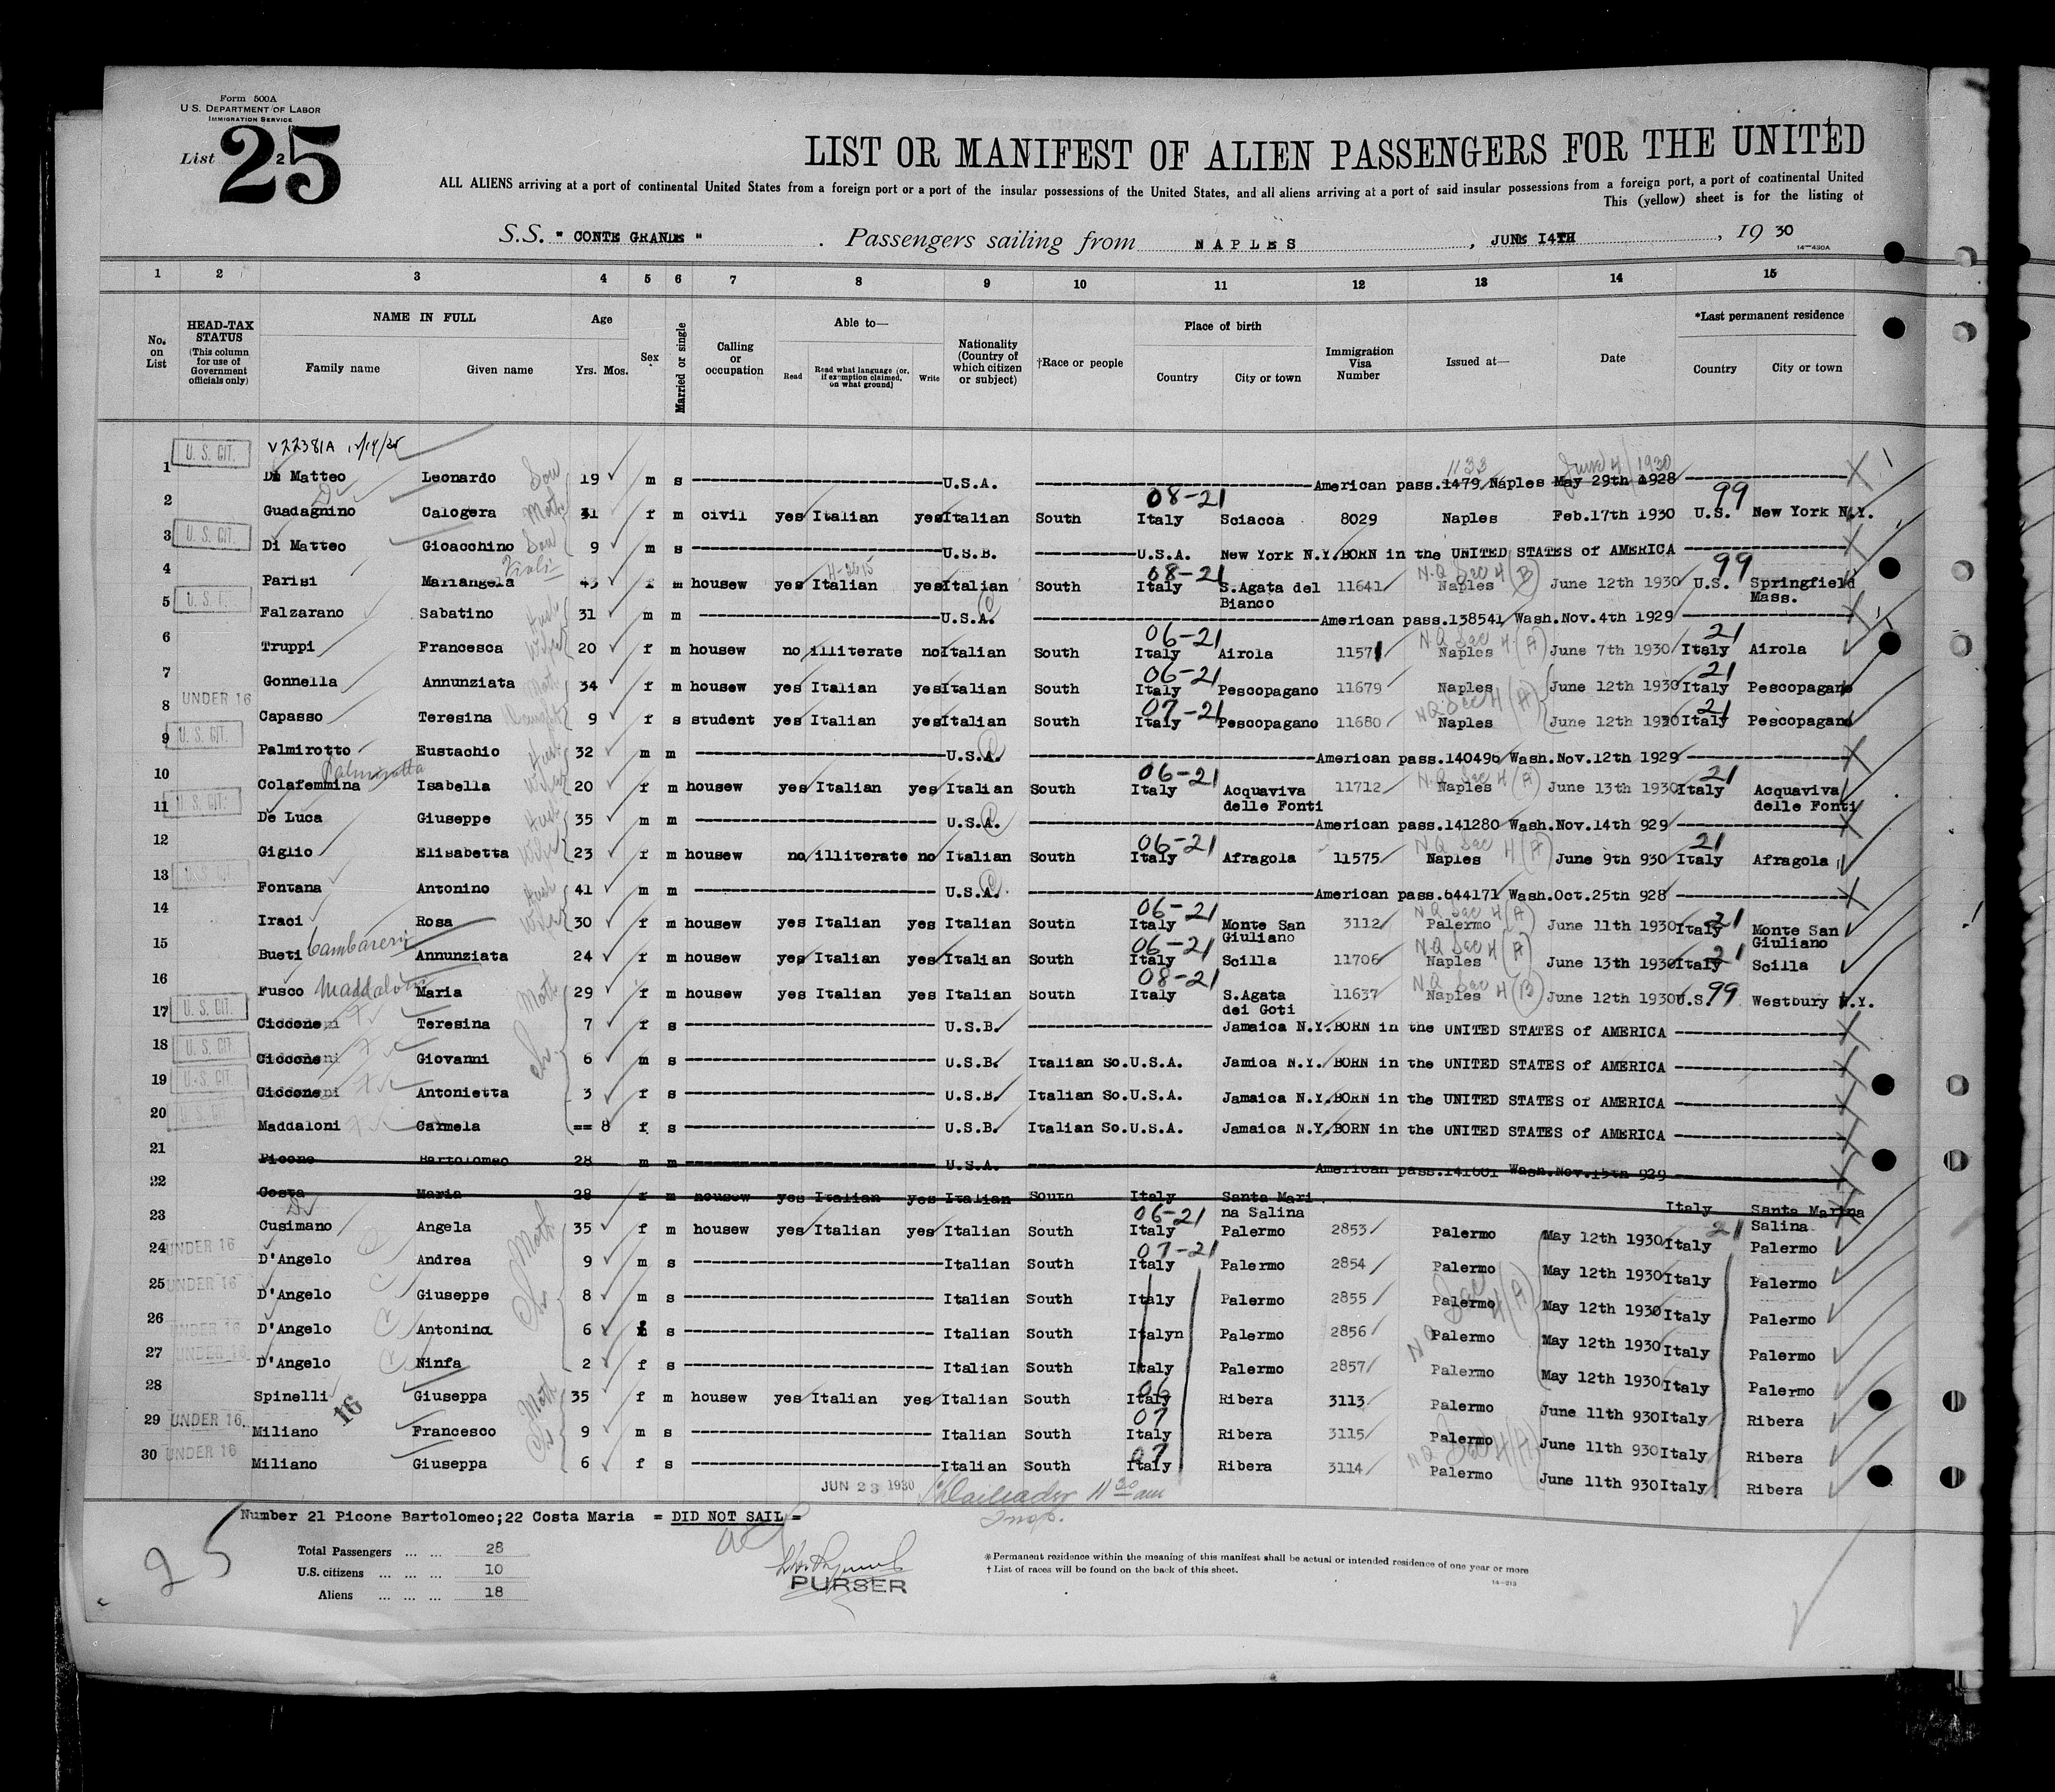 Form 500A
U. S. DEPARTMENT OF LABOR
IMMIGRATION SERVICE
List 2 25
LIST OR MANIFEST OF ALIEN PASSENGERS FOR THE UNITED
ALL ALIENS arriving at a port of continental United States from a foreign port or a port of the insular possessions of the United States, and all aliens arriving at a port of said insular possessions from a foreign port, a port of continental United
This (yellow) sheet is for the listing of
S.S. " CONTE GRANDE " . Passengers sailing from NAPLES , JUNE 14TH , 19 30
14-430A
1 2 3 4 5 6 7 8 9 10 11 12 13 14 15
No. on List
HEAD-TAX STATUS (This column for use of Government officials only)
NAME IN FULL
Family name Given name
Age
Yrs. Mos.
Sex
Married or single
Calling or occupation
Able to—
Read Read what language (or, if exemption claimed, on what ground) Write
Nationality (Country of which citizen or subject)
†Race or people
Place of birth
Country City or town
Immigration Visa Number
Issued at—
Date
*Last permanent residence
Country City or town
V22381A
1 U. S. CIT. Di Matteo Leonardo Son 19 m s U.S.A. American pass.1479 1133 Naples May 29th 1928 June 4/1930
2 Guadagnino Calogera Moth 31 f m civil yes Italian yes Italian South 08-21 Italy Sciacca 8029 Naples Feb.17th 1930 U.S. 99 New York N.Y.
3 U. S. CIT. Di Matteo Gioacchino Son 9 m s U.S.B. U.S.A. New York N.Y. BORN in the UNITED STATES of AMERICA
4 Parisi Mariangela 43 f m housew yes Italian yes Italian South 08-21 Italy S.Agata del Bianco 11641 N.Q Sec 4 (B) Naples June 12th 1930 U.S. 99 Springfield Mass.
5 Falzarano Sabatino Husb 31 m m U.S.A. American pass.138541 Wash.Nov.4th 1929
6 Truppi Francesca Wife 20 f m housew no illiterate no Italian South 06-21 Italy Airola 11571 N Q Sec 4 (A) Naples June 7th 1930 Italy 21 Airola
7 Gonnella Annunziata Moth 34 f m housew yes Italian yes Italian South 06-21 Italy Pescopagano 11679 Naples June 12th 1930 Italy 21 Pescopagano
8 UNDER 16 Capasso Teresina Daught 9 f s student yes Italian yes Italian South 07-21 Italy Pescopagano 11680 NQ Sec 4 (A) Naples June 12th 1930 Italy 21 Pescopagano
9 U. S. CIT. Palmirotto Eustachio Husb 32 m m U.S.A. American pass.140496 Wash.Nov.12th 1929
10 Colafemmina Palmirotta Isabella Wife 20 f m housew yes Italian yes Italian South 06-21 Italy Acquaviva delle Fonti 11712 N.Q Sec 4 (A) Naples June 13th 1930 Italy 21 Acquaviva delle Fonti
11 U. S. CIT. De Luca Giuseppe Husb 35 m m U.S.A. American pass.141280 Wash.Nov.14th 929
12 Giglio Elisabetta Wife 23 f m housew no illiterate no Italian South 06-21 Italy Afragola 11575 N Q Sec 4 (A) Naples June 9th 930 Italy 21 Afragola
13 U. S. CIT. Fontana Antonino Husb 41 m m U.S.A. American pass.644171 Wash.Oct.25th 928
14 Iraci Rosa Wife 30 f m housew yes Italian yes Italian South 06-21 Italy Monte San Giuliano 3112 N Q Sec 4 (A) Palermo June 11th 1930 Italy 21 Monte San Giuliano
15 Bueti Annunziata 24 f m housew yes Italian yes Italian South 06-21 Italy Scilla 11706 N.Q Sec 4 (A) Naples June 13th 1930 Italy 21 Scilla
16 Fusco Maddaloni Maria Moth 29 f m housew yes Italian yes Italian South 08-21 Italy S.Agata dei Goti 11637 N Q Sec 4 (B) Naples June 12th 1930 U.S. 99 Westbury N.Y.
17 U. S. CIT. Ciccone Teresina 7 f s U.S.B. Jamaica N.Y. BORN in the UNITED STATES of AMERICA
18 U. S. CIT. Ciccone Giovanni 6 m s U.S.B. Italian So. U.S.A. Jamica N.Y. BORN in the UNITED STATES of AMERICA
19 U. S. CIT. Ciccone Antonietta 3 f s U.S.B. Italian So. U.S.A. Jamaica N.Y. BORN in the UNITED STATES of AMERICA
20 U. S. CIT. Maddaloni Carmela == 8 f s U.S.B. Italian So. U.S.A. Jamaica N.Y. BORN in the UNITED STATES of AMERICA
21 Picone Bartolomeo 28 m m U.S.A. American pass.141601 Wash.Nov.15th 929
22 Costa Maria 28 f m housew yes Italian yes Italian South Italy Santa Mari na Salina Italy Santa Marina Salina
23 Cusimano Angela Moth 35 f m housew yes Italian yes Italian South 06-21 Italy Palermo 2853 Palermo May 12th 1930 Italy 21 Palermo
24 UNDER 16 D'Angelo Andrea 9 m s Italian South 07-21 Italy Palermo 2854 Palermo May 12th 1930 Italy Palermo
25 UNDER 16 D'Angelo Giuseppe 8 m s Italian South Italy Palermo 2855 Palermo May 12th 1930 Italy Palermo
26 UNDER 16 D'Angelo Antonina 6 f s Italian South Italyn Palermo 2856 Palermo May 12th 1930 Italy Palermo
27 UNDER 16 D'Angelo Ninfa 2 f s Italian South Italy Palermo 2857 Palermo May 12th 1930 Italy Palermo
28 Spinelli Giuseppa Moth 35 f m housew yes Italian yes Italian South 06 Italy Ribera 3113 Palermo June 11th 930 Italy Ribera
29 UNDER 16 16 Miliano Francesco 9 m s Italian South 07 Italy Ribera 3115 Palermo June 11th 930 Italy Ribera
30 UNDER 16 Miliano Giuseppa 6 f s Italian South 07 Italy Ribera 3114 Palermo June 11th 930 Italy Ribera
JUN 23 1930 11 30 am
Insp.
Number 21 Picone Bartolomeo;22 Costa Maria = DID NOT SAIL =
25
Total Passengers ... ... 28
U.S. citizens ... ... ... 10
Aliens ... ... ... 18
PURSER
*Permanent residence within the meaning of this manifest shall be actual or intended residence of one year or more
† List of races will be found on the back of this sheet.
14-213